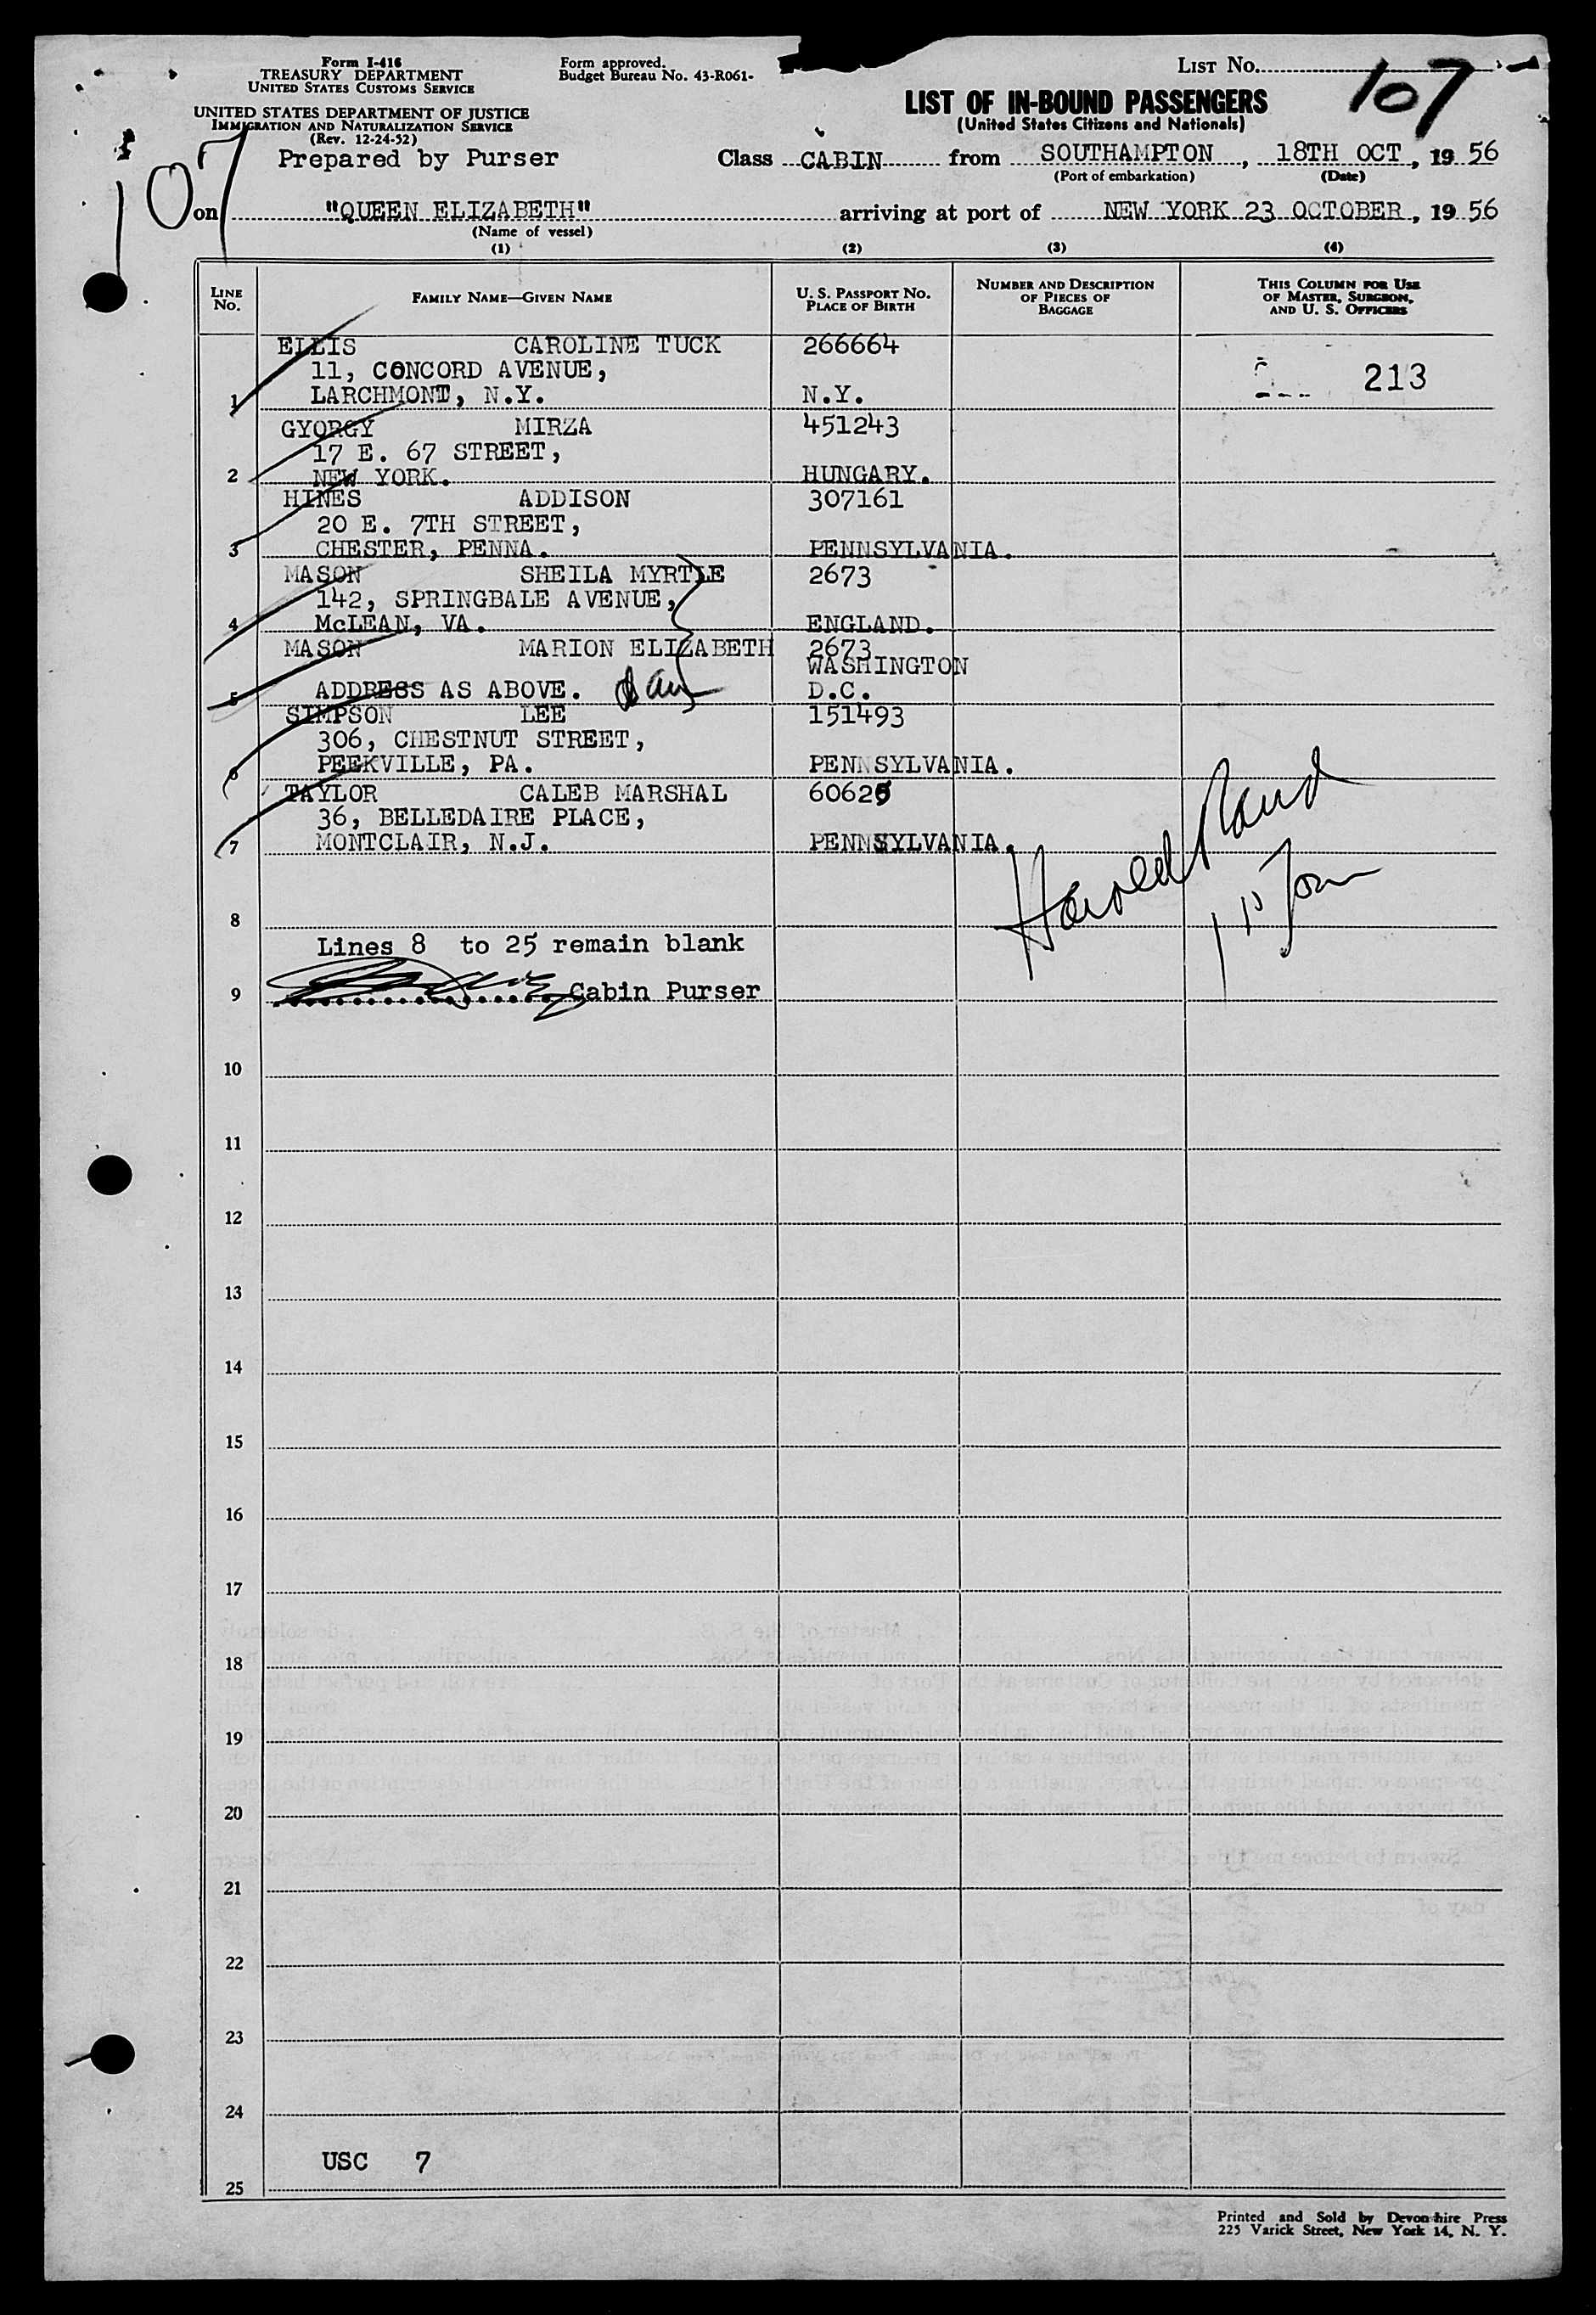 Form I-416
TREASURY DEPARTMENT
UNITED STATES CUSTOMS SERVICE
UNITED STATES DEPARTMENT OF JUSTICE
IMMIGRATION AND NATURALIZATION SERVICE
(Rev. 12-24-52)
Form approved.
Budget Bureau No. 43-R061-
LIST NO. 107
LIST OF IN-BOUND PASSENGERS
(United States Citizens and Nationals)
107
Prepared by Purser Class CABIN from SOUTHAMPTON, 18TH OCT, 19 56
(Port of embarkation) (Date)
on "QUEEN ELIZABETH" arriving at port of NEW YORK 23 OCTOBER, 19 56
(Name of vessel)
(1) (2) (3) (4)
LINE NO. FAMILY NAME—GIVEN NAME U. S. PASSPORT NO. PLACE OF BIRTH NUMBER AND DESCRIPTION OF PIECES OF BAGGAGE THIS COLUMN FOR USE OF MASTER, SURGEON, AND U. S. OFFICERS
ELLIS CAROLINE TUCK 266664
11, CONCORD AVENUE, 213
1 LARCHMONT, N.Y. N.Y.
GYORGY MIRZA 451243
17 E. 67 STREET,
2 NEW YORK. HUNGARY.
HINES ADDISON 307161
20 E. 7TH STREET,
3 CHESTER, PENNA. PENNSYLVANIA.
MASON SHEILA MYRTLE 2673
142, SPRINGBALE AVENUE,
4 McLEAN, VA. ENGLAND.
MASON MARION ELIZABETH 2673
WASHINGTON
5 ADDRESS AS ABOVE. D.C.
SIMPSON LEE 151493
306, CHESTNUT STREET,
6 PEEKVILLE, PA. PENNSYLVANIA.
TAYLOR CALEB MARSHAL 60625
36, BELLEDAIRE PLACE,
7 MONTCLAIR, N.J. PENNSYLVANIA.
Harold
8
Lines 8 to 25 remain blank
9 Cabin Purser
10
11
12
13
14
15
16
17
18
19
20
21
22
23
24
USC 7
25
Printed and Sold by Devonshire Press
225 Varick Street, New York 14, N. Y.